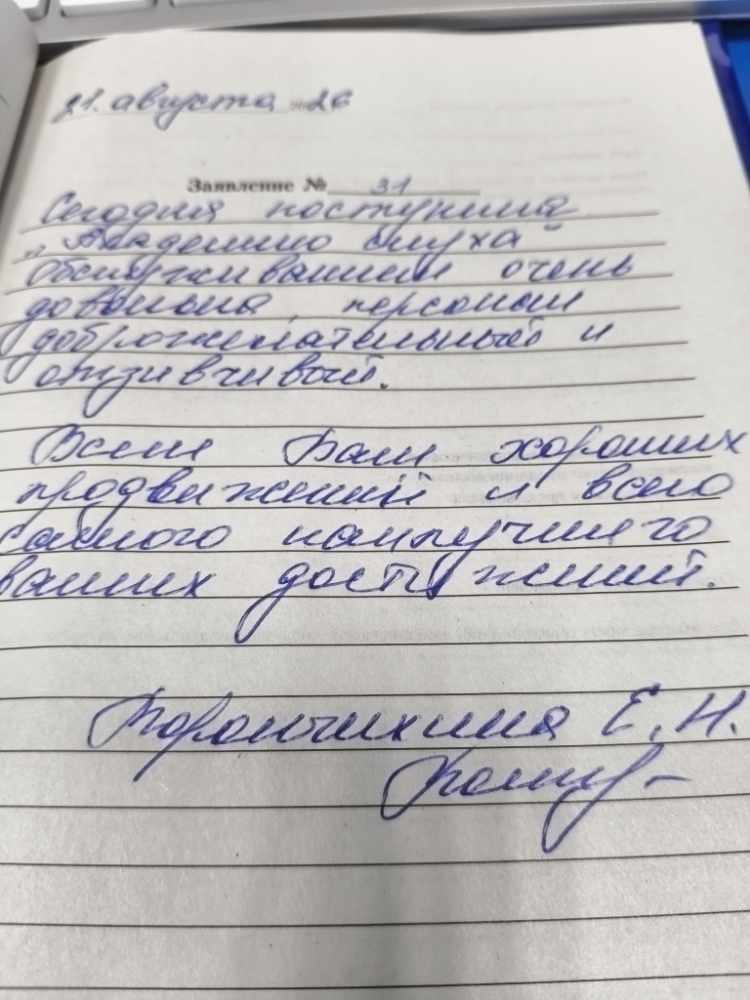 21. августа 26
Заявление № 31
Сегодня поступила
"Академию слуха"
Обслуживанием очень
довольна, персонал
доброжелательный и
отзывчивый.
Всем Вам хороших
продвижений и всего
самого наилучшего
ваших достижений.
Е. Н.